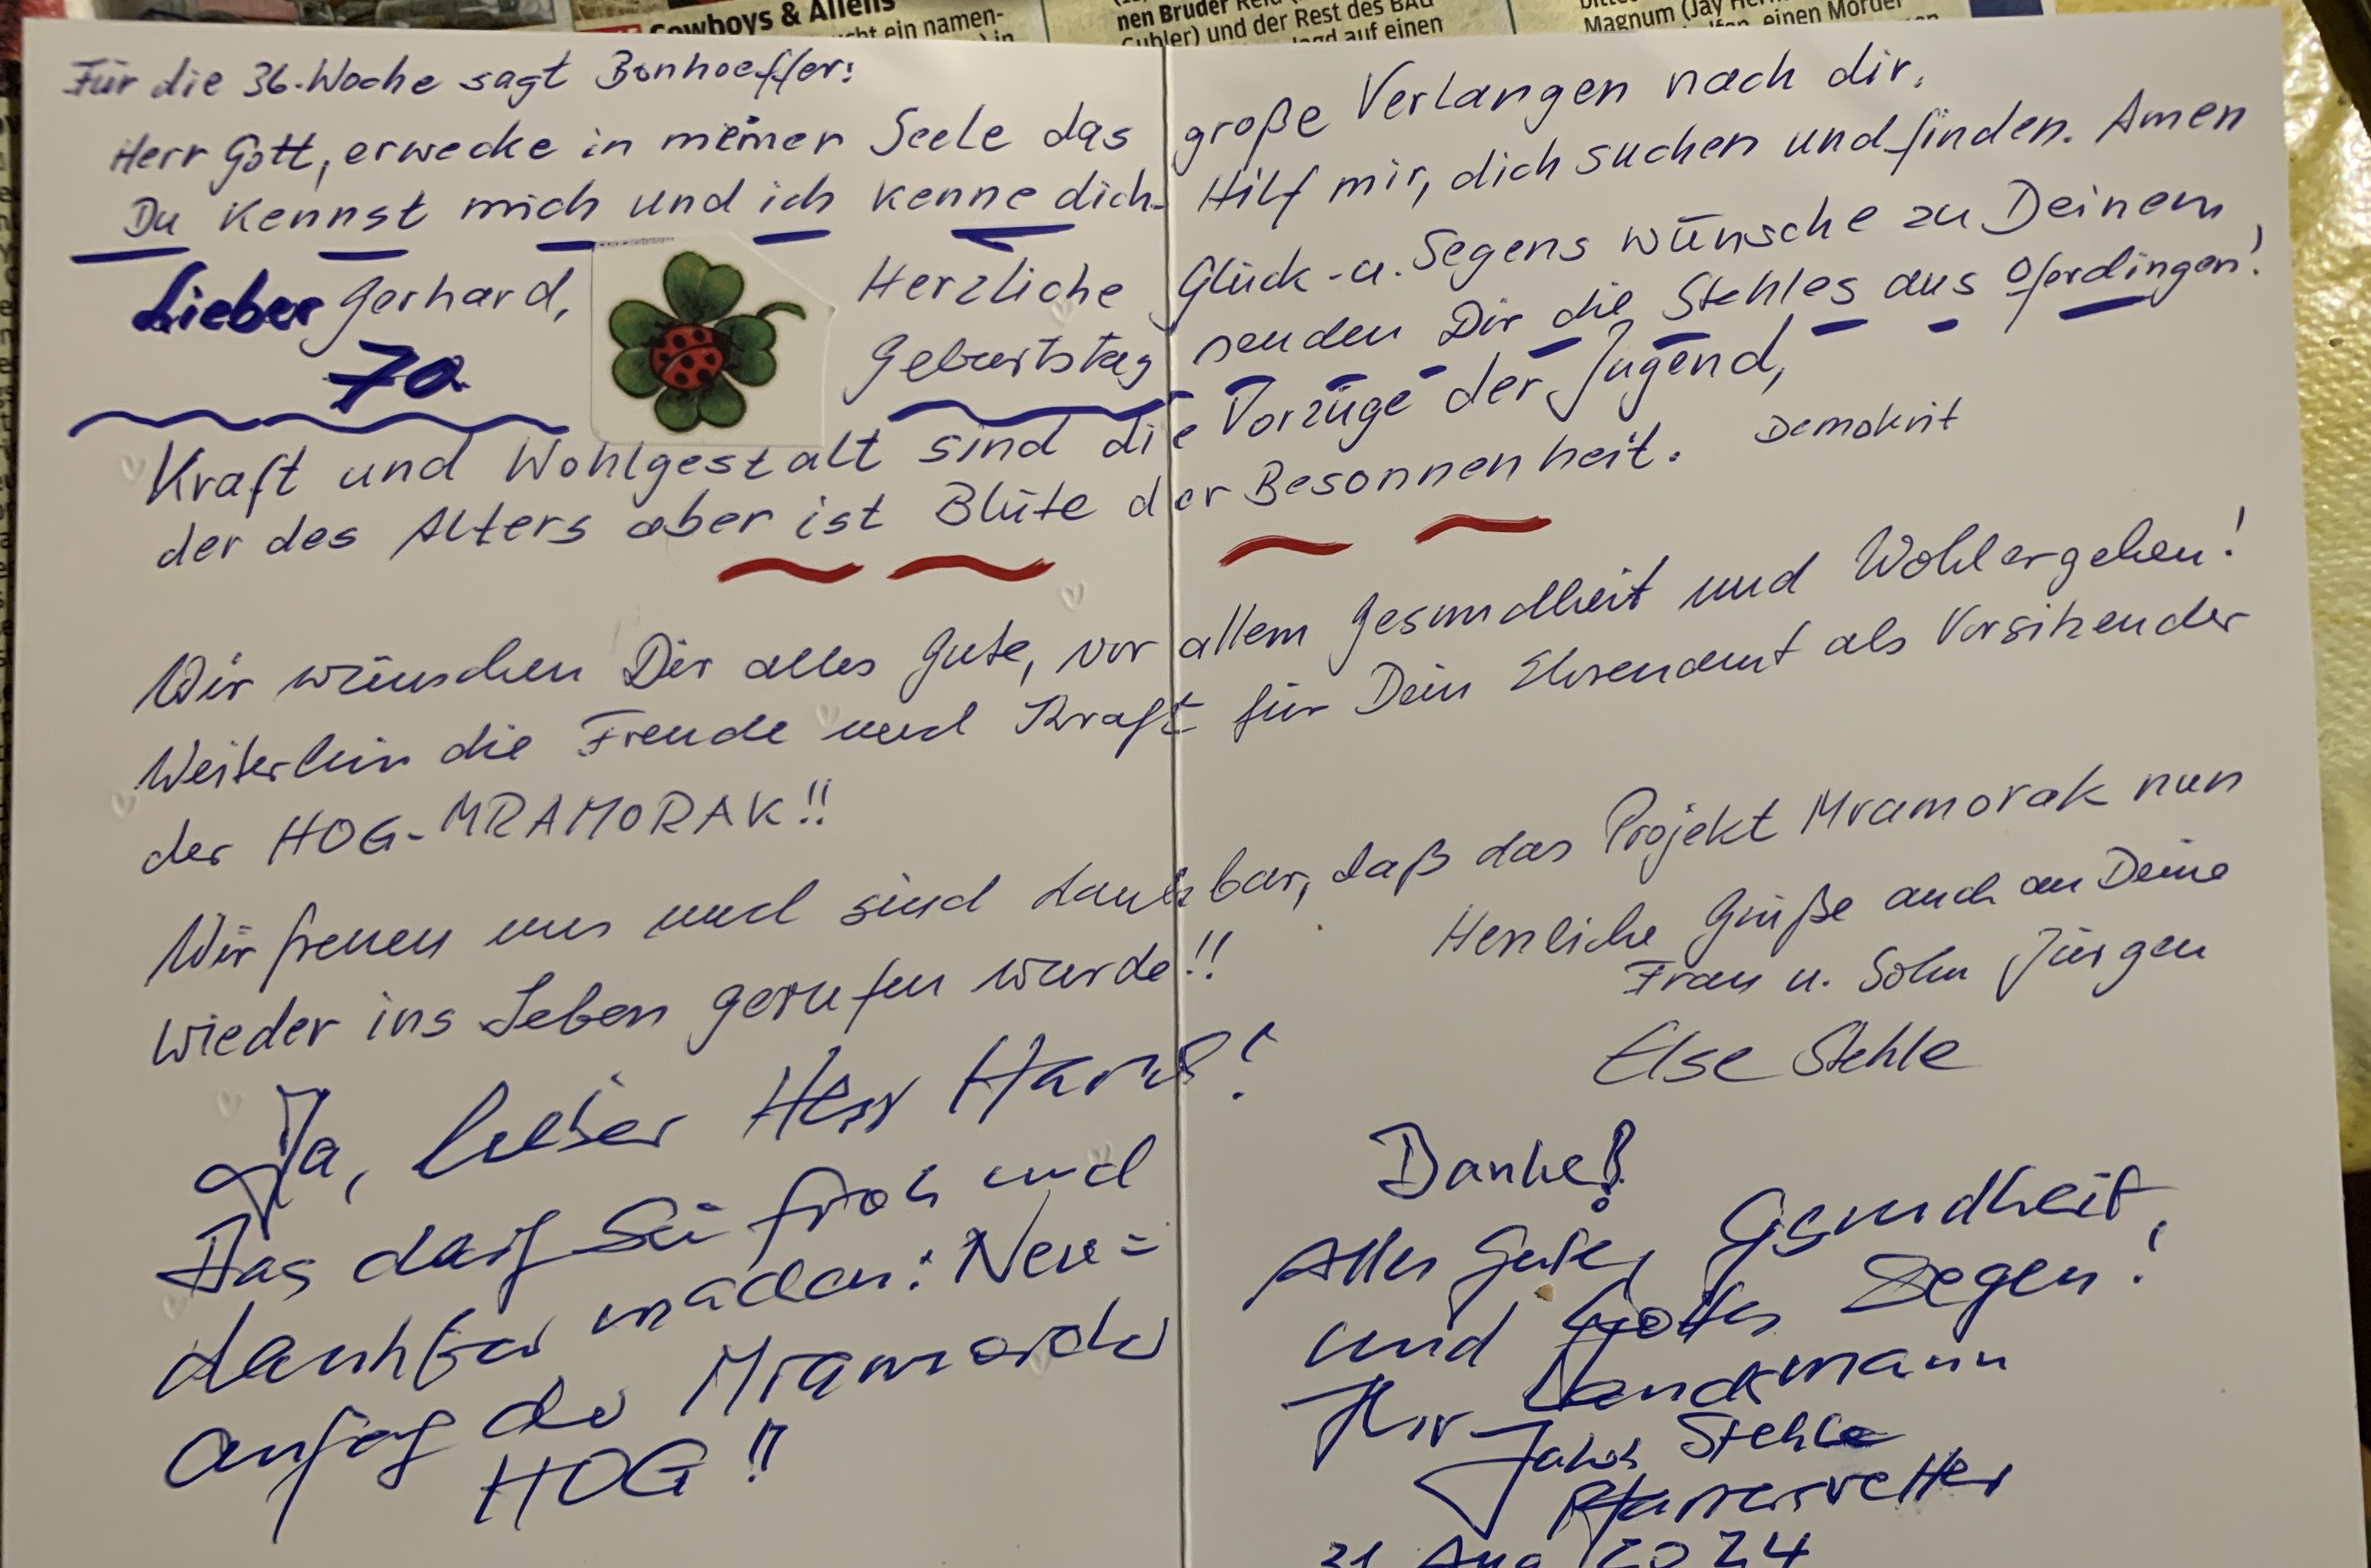 Cowboys & Aliens
cht ein namen-
nen Bruder
und der Rest des BAU
Gubler)
auf einen
Magnum (Jay
einen Mörder
Für die 36. Woche sagt Bonhoeffer:
Herr Gott, erwecke in meiner Seele das große Verlangen nach dir.
Du kennst mich und ich kenne dich. Hilf mir, dich suchen und finden. Amen
Lieber Gerhard, Herzliche Glück- u. Segenswünsche zu Deinem
70. Geburtstag senden Dir die Stehles aus Oferdingen!
Kraft und Wohlgestalt sind die Vorzüge der Jugend,
der des Alters aber ist Blüte der Besonnenheit. Demokrit
Wir wünschen Dir alles Gute, vor allem Gesundheit und Wohlergehen!
Weiterhin die Freude und Kraft für Dein Ehrenamt als Vorsitzender
der HOG-MRAMORAK!!
Wir freuen uns und sind dankbar, daß das Projekt Mramorak nun
wieder ins Leben gerufen wurde!!
Herzliche Grüße auch an Deine
Frau u. Sohn Jürgen
Else Stehle
Ja, lieber Herr
Das darf Sie froh und
dankbar machen: Neu=
anfang der Mramoraker
HOG!!
Danke!
Alles Gute, Gesundheit,
und Gottes Segen!
Ihr Landsmann
Jakob Stehle
Pfarrersvetter
31 Aug 2024